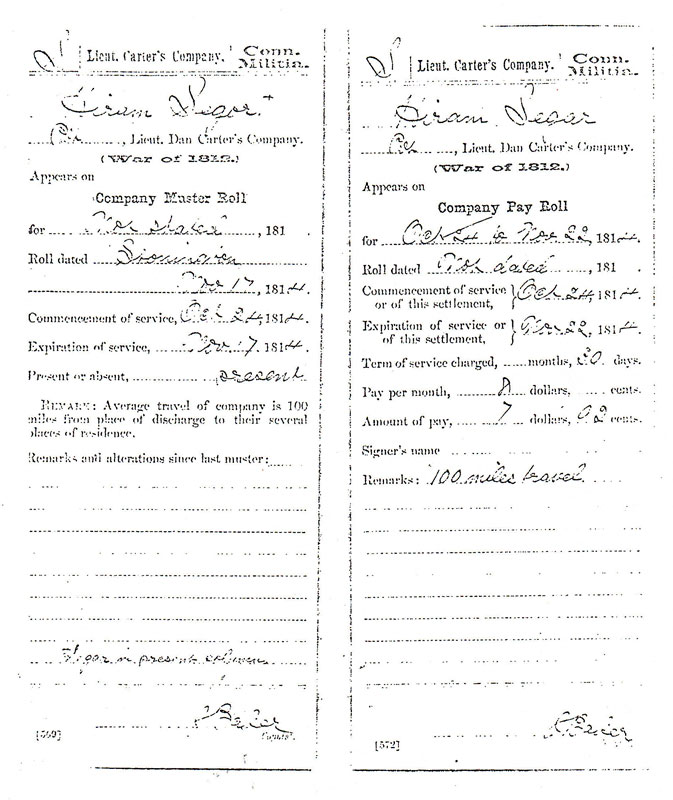 S | Lieut. Carter's Company. | Conn. Militia.
Hiram Segor +
Pvt, Lieut. Dan Carter's Company.
(War of 1812.)
Appears on
Company Muster Roll
for Not stated, 181 .
Roll dated Stonington
Nov 17, 1814.
Commencement of service, Oct 24, 1814.
Expiration of service, Nov 17, 1814.
Present or absent, present
REMARK: Average travel of company is 100
miles from place of discharge to their several
places of residence.
Remarks and alterations since last muster:
Segar in present column
[569]
Copyist.
S | Lieut. Carter's Company. | Conn. Militia.
Hiram Segar
Pvt, Lieut. Dan Carter's Company.
(War of 1812.)
Appears on
Company Pay Roll
for Oct 24 to Nov 22, 1814.
Roll dated Not dated, 181 .
Commencement of service or of this settlement, } Oct 24, 1814.
Expiration of service or of this settlement, } Nov 22, 1814.
Term of service charged, months, 30 days.
Pay per month, 8 dollars, cents.
Amount of pay, 7 dollars, 92 cents.
Signer's name
Remarks: 100 miles travel
[572]